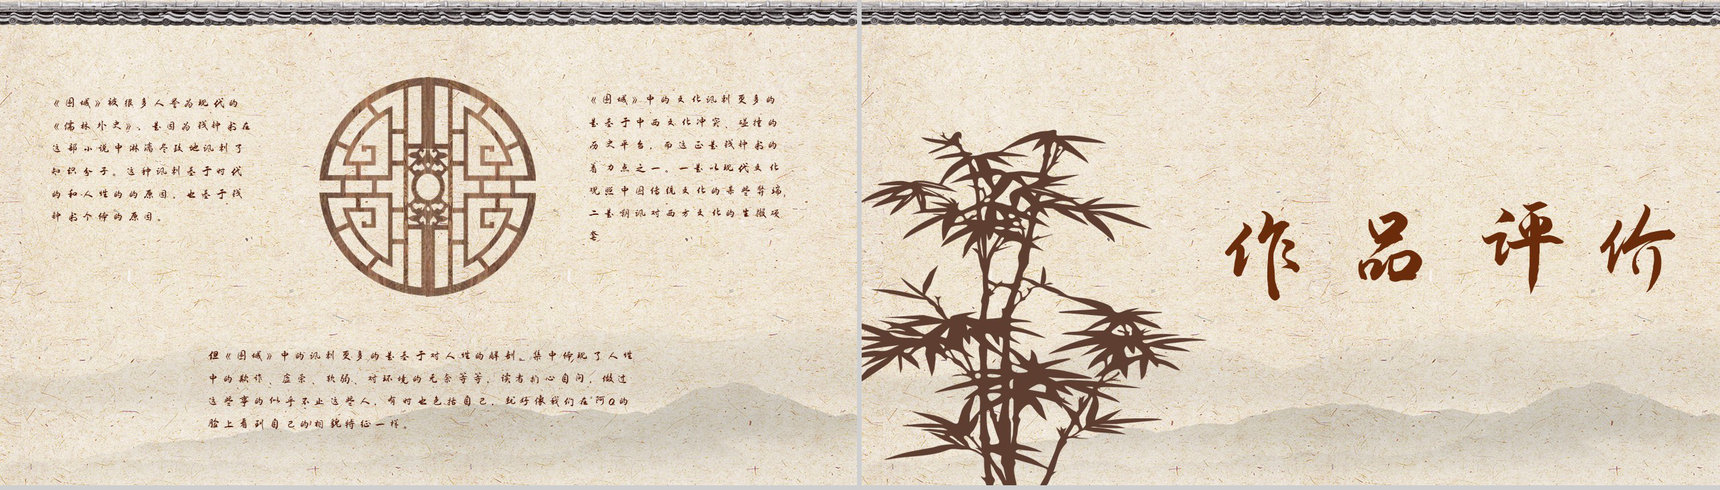 《围城》被很多人誉为现代的
《儒林外史》，是因为钱钟书在
这部小说中淋漓尽致地讽刺了
知识分子。这种讽刺基于时代
的和人性的的原因，也基于钱
钟书个体的原因。
《围城》中的文化讽刺更多的
是基于中西文化冲突、碰撞的
历史平台，而这正是钱钟书的
着力点之一。一是以现代文化
观照中国传统文化的某些弊端，
二是嘲讽对西方文化的生搬硬
套。
但《围城》中的讽刺更多的是基于对人性的解剖。集中体现了人性
中的欺诈、虚荣、软弱、对环境的无奈等等，读者扪心自问，做过
这些事的似乎不止这些人，有时也包括自己，就好像我们在阿Q的
脸上看到自己的相貌特征一样。
作品评价